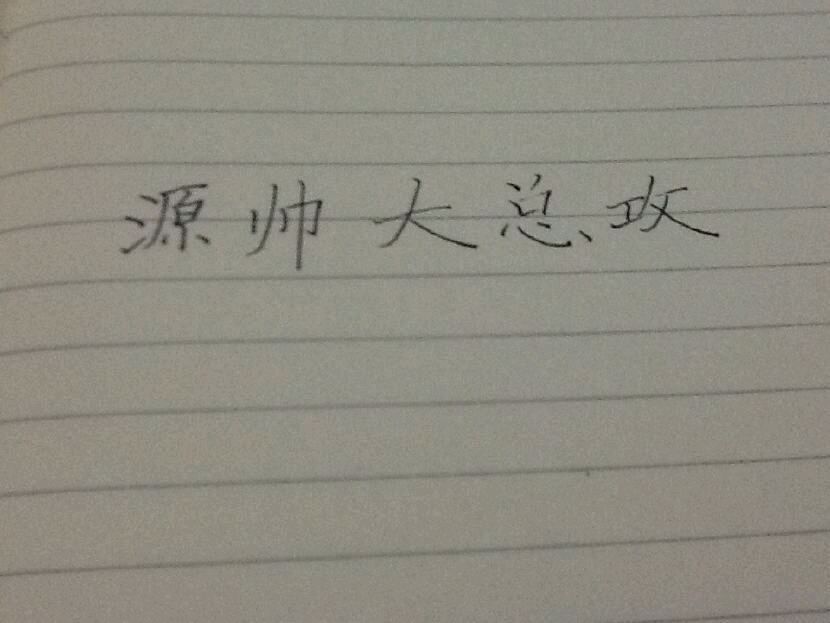 源帅大总攻